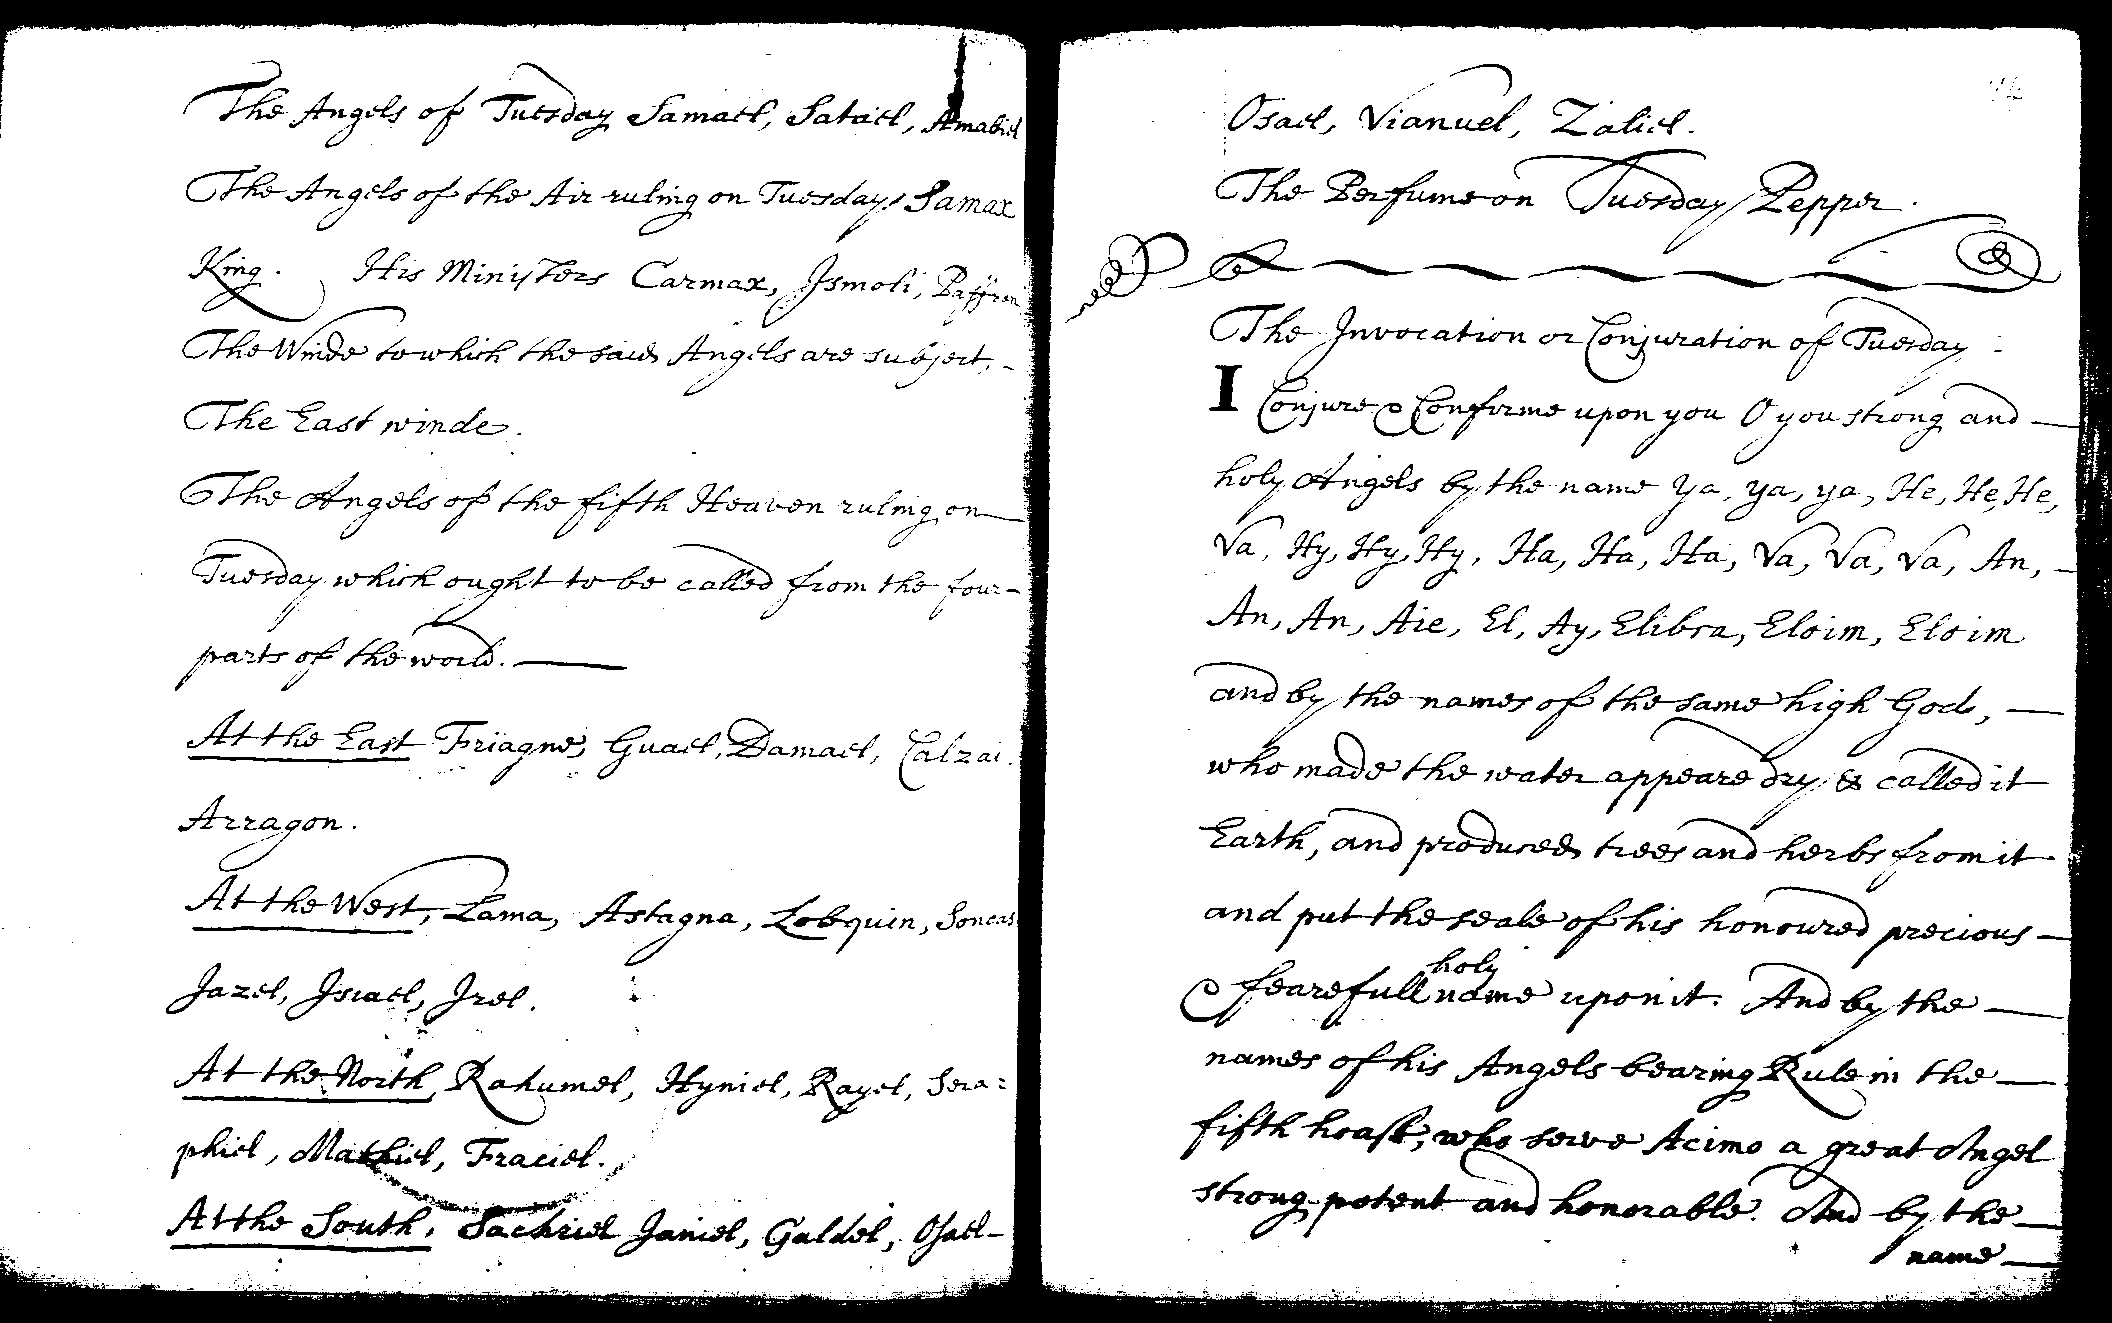 The Angels of Tuesday Samael, Satael, Amabiel
The Angels of the Air ruling on Tuesday, Samax
King. His Ministers Carmax, Jsmoli, Paffran
The Winde to which the said Angels are subject,
The East winde.
The Angels of the fifth Heaven ruling on
Tuesday which ought to be called from the four
parts of the world.
At the East Friagne, Guael, Damael, Calzas.
Arragon.
At the West, Lama, Astagna, Lobquin, Soncas
Jazel, Jsiael, Jrel.
At the North, Rahumel, Hyniel, Rayel, Sera=
phiel, Mathiel, Fraciel.
At the South, Sachriel Janiel, Galdel, Osael
Osael, Vianuel, Zaliel.
The Perfume on Tuesday Pepper.
The Jnvocation or Conjuration of Tuesday
I Conjure & Confirme upon you O you strong and
holy Angels by the name Ya, ya, ya, He, He, He,
Va, Hy, Hy, Hy, Ha, Ha, Ha, Va, Va, Va, An,
An, An, Aie, El, Ay, Elibra, Eloim, Eloim
and by the names of the same high God,
who made the water appeare dry & called it
Earth, and produced trees and herbs from it
and put the seale of his honoured precious
holy
& fearefull name upon it. And by the
names of his Angels bearing Rule in the
fifth hoast, who serve Acimo a great Angel
strong potent and honorable. And by the
name